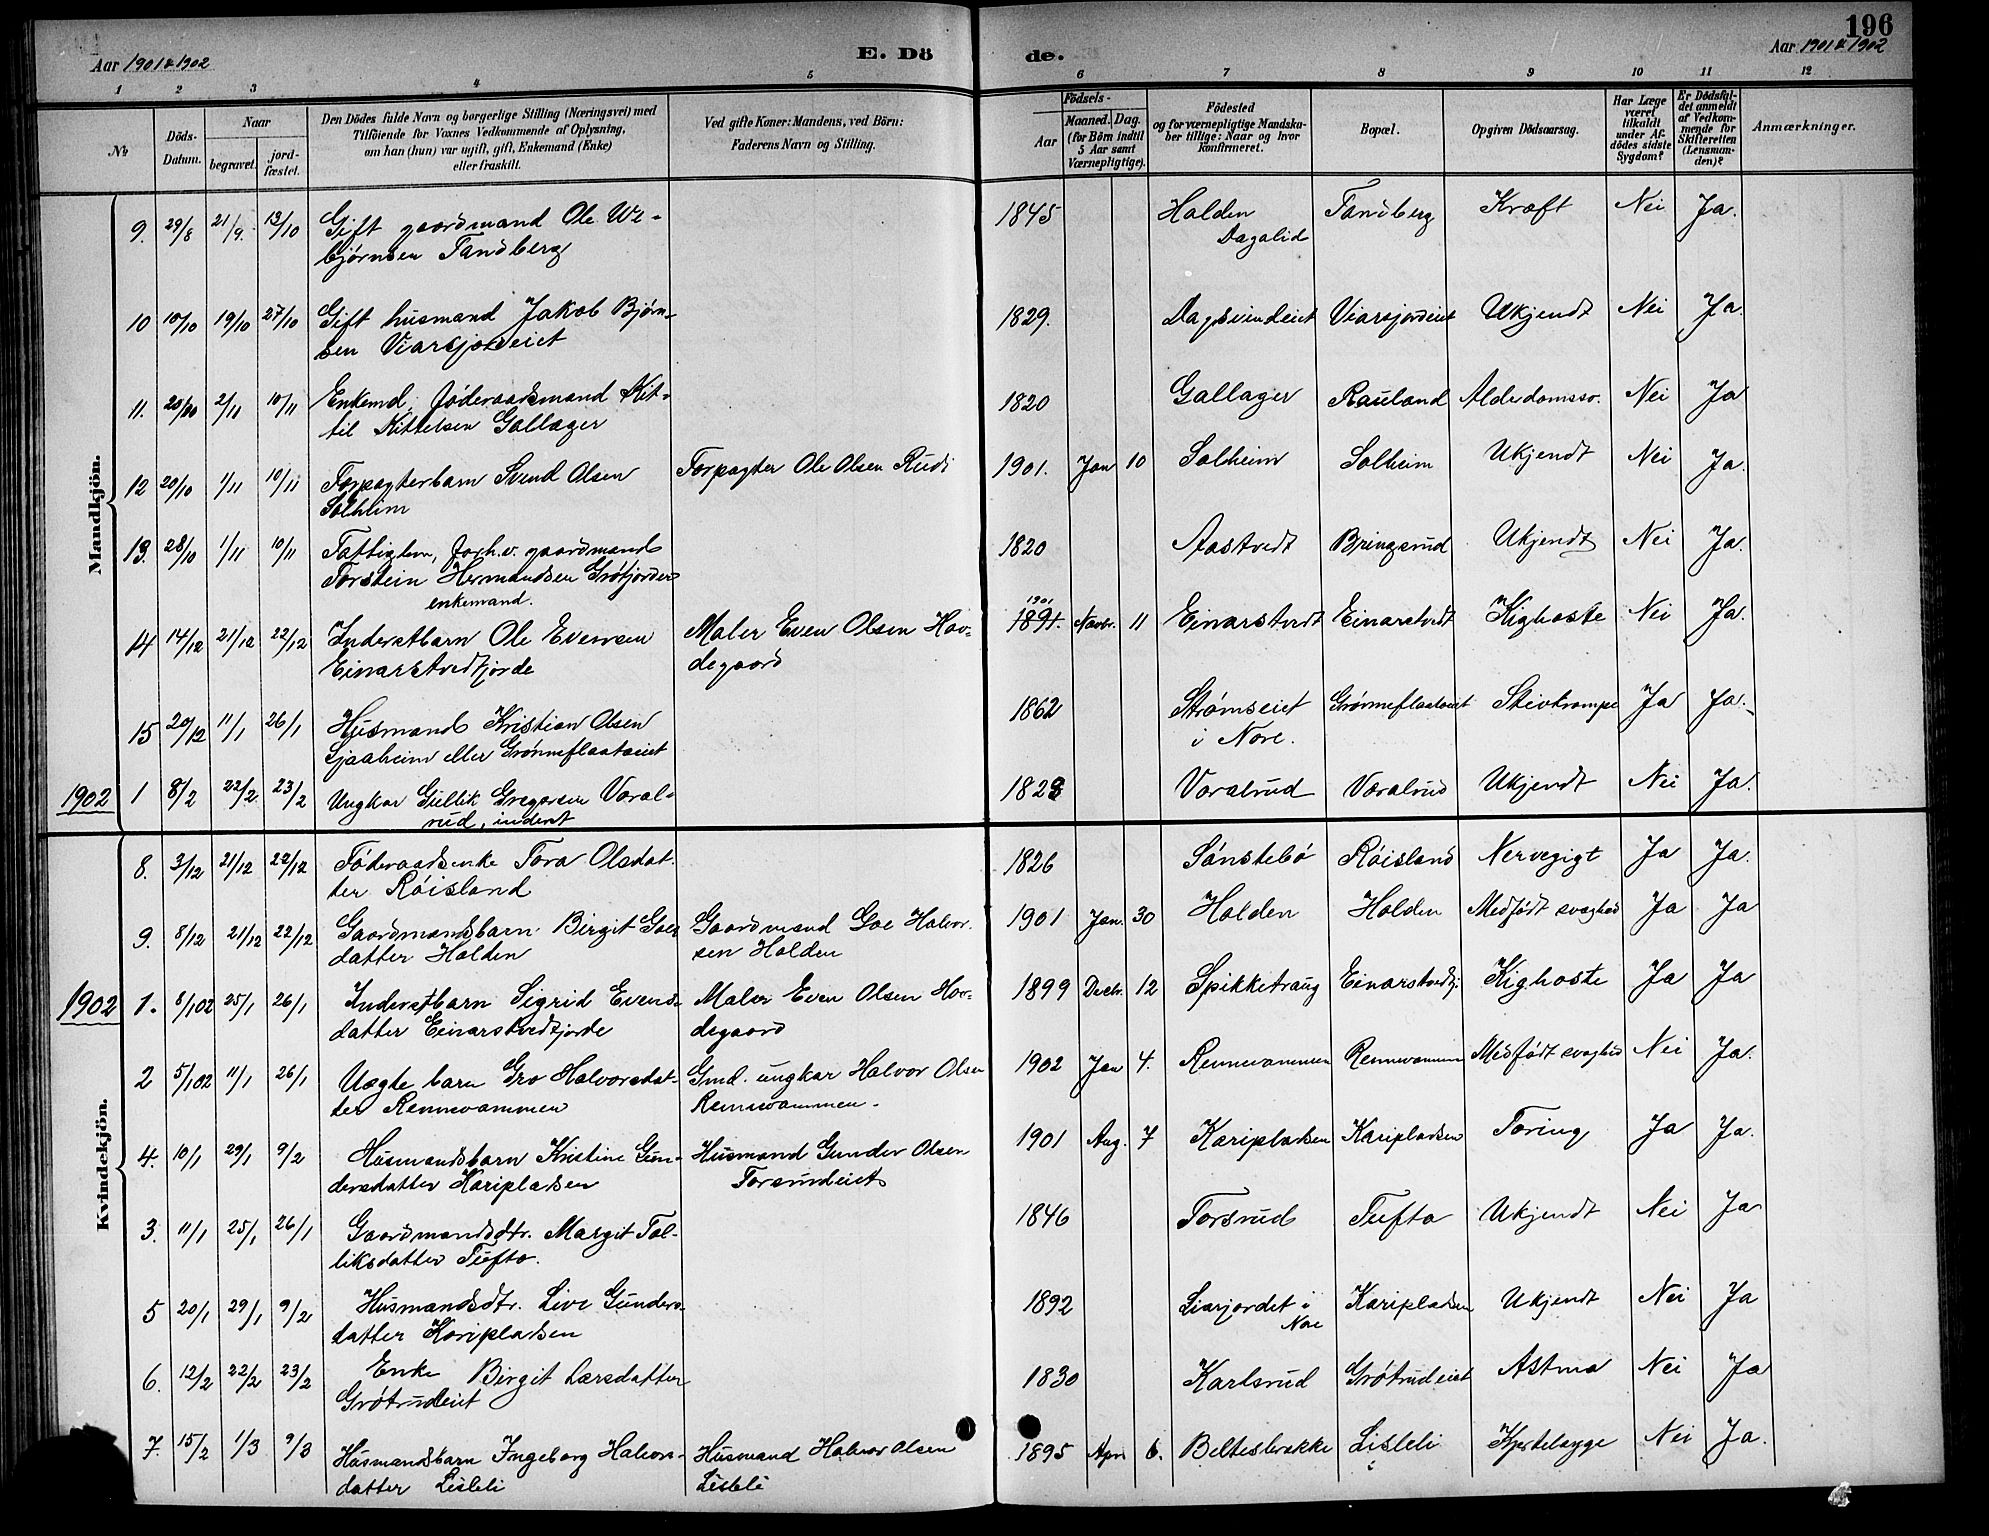 196
Aar 1901 & 1902
E. Dö
de.
Aar 1901 & 1902
1 2 3 4 5 6 7 8 9 10 11 12
No
Döds-Datum.
Naar
begravet.
jord-fæstet.
Den Dödes fulde Navn og borgerlige Stilling (Næringsvei) med
Tilföiende for Voxnes Vedkommende af Oplysning,
om han (hun) var ugift, gift, Enkemand (Enke)
eller fraskilt.
Ved gifte Koner: Mandens, ved Börn:
Faderens Navn og Stilling.
Födsels-
Aar
Maaned. Dag.
(for Börn indtil
5 Aar samt
Værnepligtige).
Födested
og for værnepligtige Mandska-
ber tillige: Naar og hvor
konfirmeret.
Bopæl.
Opgiven Dödsaarsag.
Har Læge
været
tilkaldt
under Af-
dödes sidste
Sygdom?
Er Dödsfal-
det anmeldt
af Vedkom-
mende for
Skifteretten
(Lensman-
den)?
Anmærkninger.
Mandkjön.
9. 29/8 21/9. 13/10 Gift gaardmand Ole Ve- 1845 Halden Tandberg Kræft Nei Ja.
bjørnsen Tandberg Dagalid
10 10/10 19/10 27/10 Gift husmand Jakob Bjørn- 1829. Dagsvendeiet Viarsjordeiet Ukjendt Nei Ja.
sen Viarsjordeiet
11. 20/10 2/11 10/11 Enkemd, føderaadsmand Kit- 1820 Gallager Rauland Alderdomssv. Nei Ja
til Kittelsen Gallager
12 20/10 1/11 10/11 Forpagterbarn Svend Olsen Forpagter Ole Olsen Rudi 1901. Jan 10 Solheim Solheim Ukjendt Nei Ja.
Solheim
13. 28/10 1/11 10/11 Fattiglem, forh.v. gaardmand 1820 Aastvedt Bringsrud Ukjendt Nei Ja.
Torstein Hermandsen Grøtjorden
enkemand.
14 14/12 21/12 22/12 Inderstbarn Ole Evensen Maler Even Olsen Hov- 1901 1891. Novbr. 11 Einarstvedt Einarstvedt Kighoste Nei Ja.
Einarstvedtjorde degaard
15 20/12 11/1 26/1 Husmand Kristian Olsen 1862 Strømseiet Grønneflaataeiet Stivkrampe Ja Ja.
Sjaaheim eller Grønneflaataeiet i Nore.
1902 1 8/2 22/2. 23/2 Ungkar Gullik Gregersen Voral- 1828 Voralrud Voralrud Ukjendt Nei Ja.
rud, inderst
Kvindekjön.
8. 3/12 21/12 22/12 Føderaadsenke Tora Olsdat- 1826 Sønstebø Røisland Nervegigt Ja Ja.
ter Røisland
9. 8/12 21/12 22/12 Gaardmandsbarn Birgit Goes- Gaardmand Goe Halvor- 1901 Jan. 30 Holden Holden Medfødt svaghed Ja Ja
datter Holden sen Holden
1902 1. 8/1 02 25/1 26/1 Inderstbarn Sigrid Evens- Maler Even Olsen Hov- 1899 Decbr. 12 Spikketraug Einarstvedtj. Kighoste Ja Ja
datter Einarstvedtjorde degaard
2 5/1 02 11/1 26/1 Uægte barn Gro Halvorsdat- Gmd. ungkar Halvor Olsen 1902 Jan 4. Rennevammen Rennevammen Medfødt svaghed Nei Ja.
ter Rennevammen Rennevammen.
4. 10/1 29/1 9/2 Husmandsbarn Kristine Gun- Husmand Gunder Olsen 1901 Aug. 7 Karipladsen Karipladsen Tæring Ja Ja.
dersdatter Karipladsen Torsrudeiet
3. 11/1 25/1 26/1 Gaardmandsdtr. Margit Tol- 1846 Torsrud Tufto Ukjendt Nei Ja
liksdatter Tufto.
5 20/1 29/1 9/2 Husmandsdtr. Live Gunders- 1892 Liarjordet i Karipladsen Ukjendt Nei Ja
datter Karipladsen Nore
6. 12/2 22/2 23/2 Enke Birgit Larsdatter 1830 Karlsrud Grøtrudeiet Astma Nei Ja
Grøtrudeiet
7. 15/2 1/3 9/3 Husmandsbarn Ingeborg Halvors- Husmand Halvor Olsen 1895 April 6. Beltesbrække Lisleli Nei Ja.
datter Lisleli Lisleli